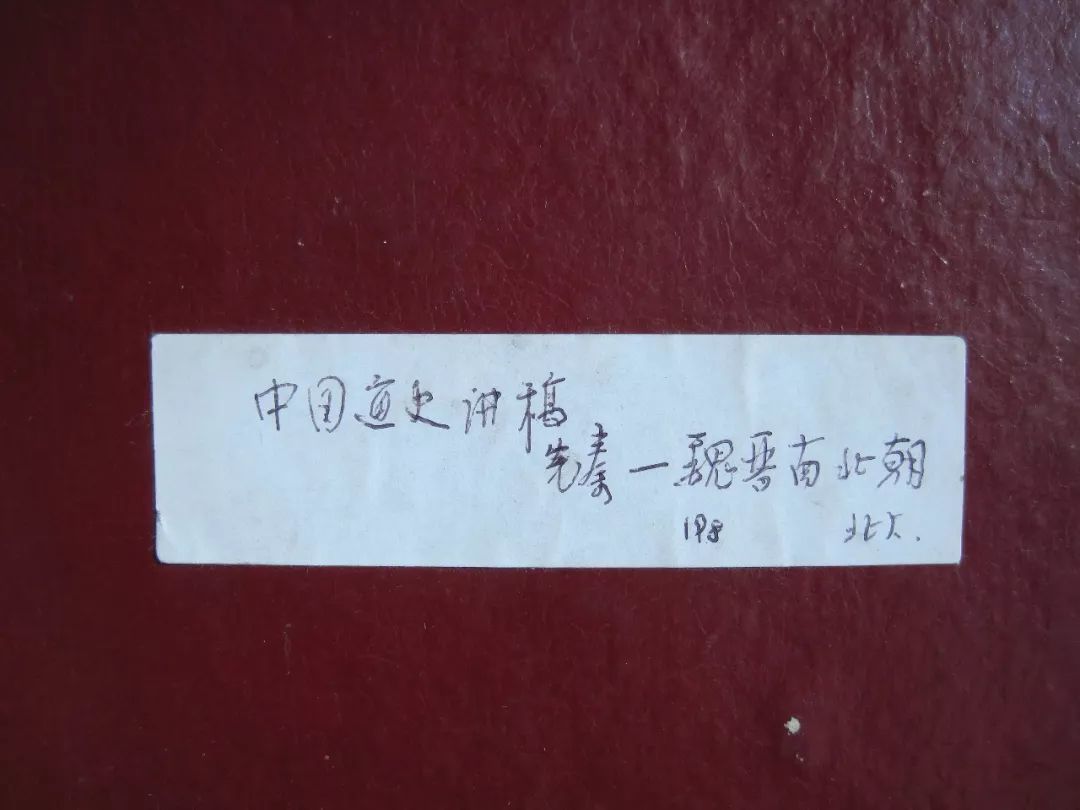 中国通史讲稿
先秦—魏晋南北朝
198 北大.